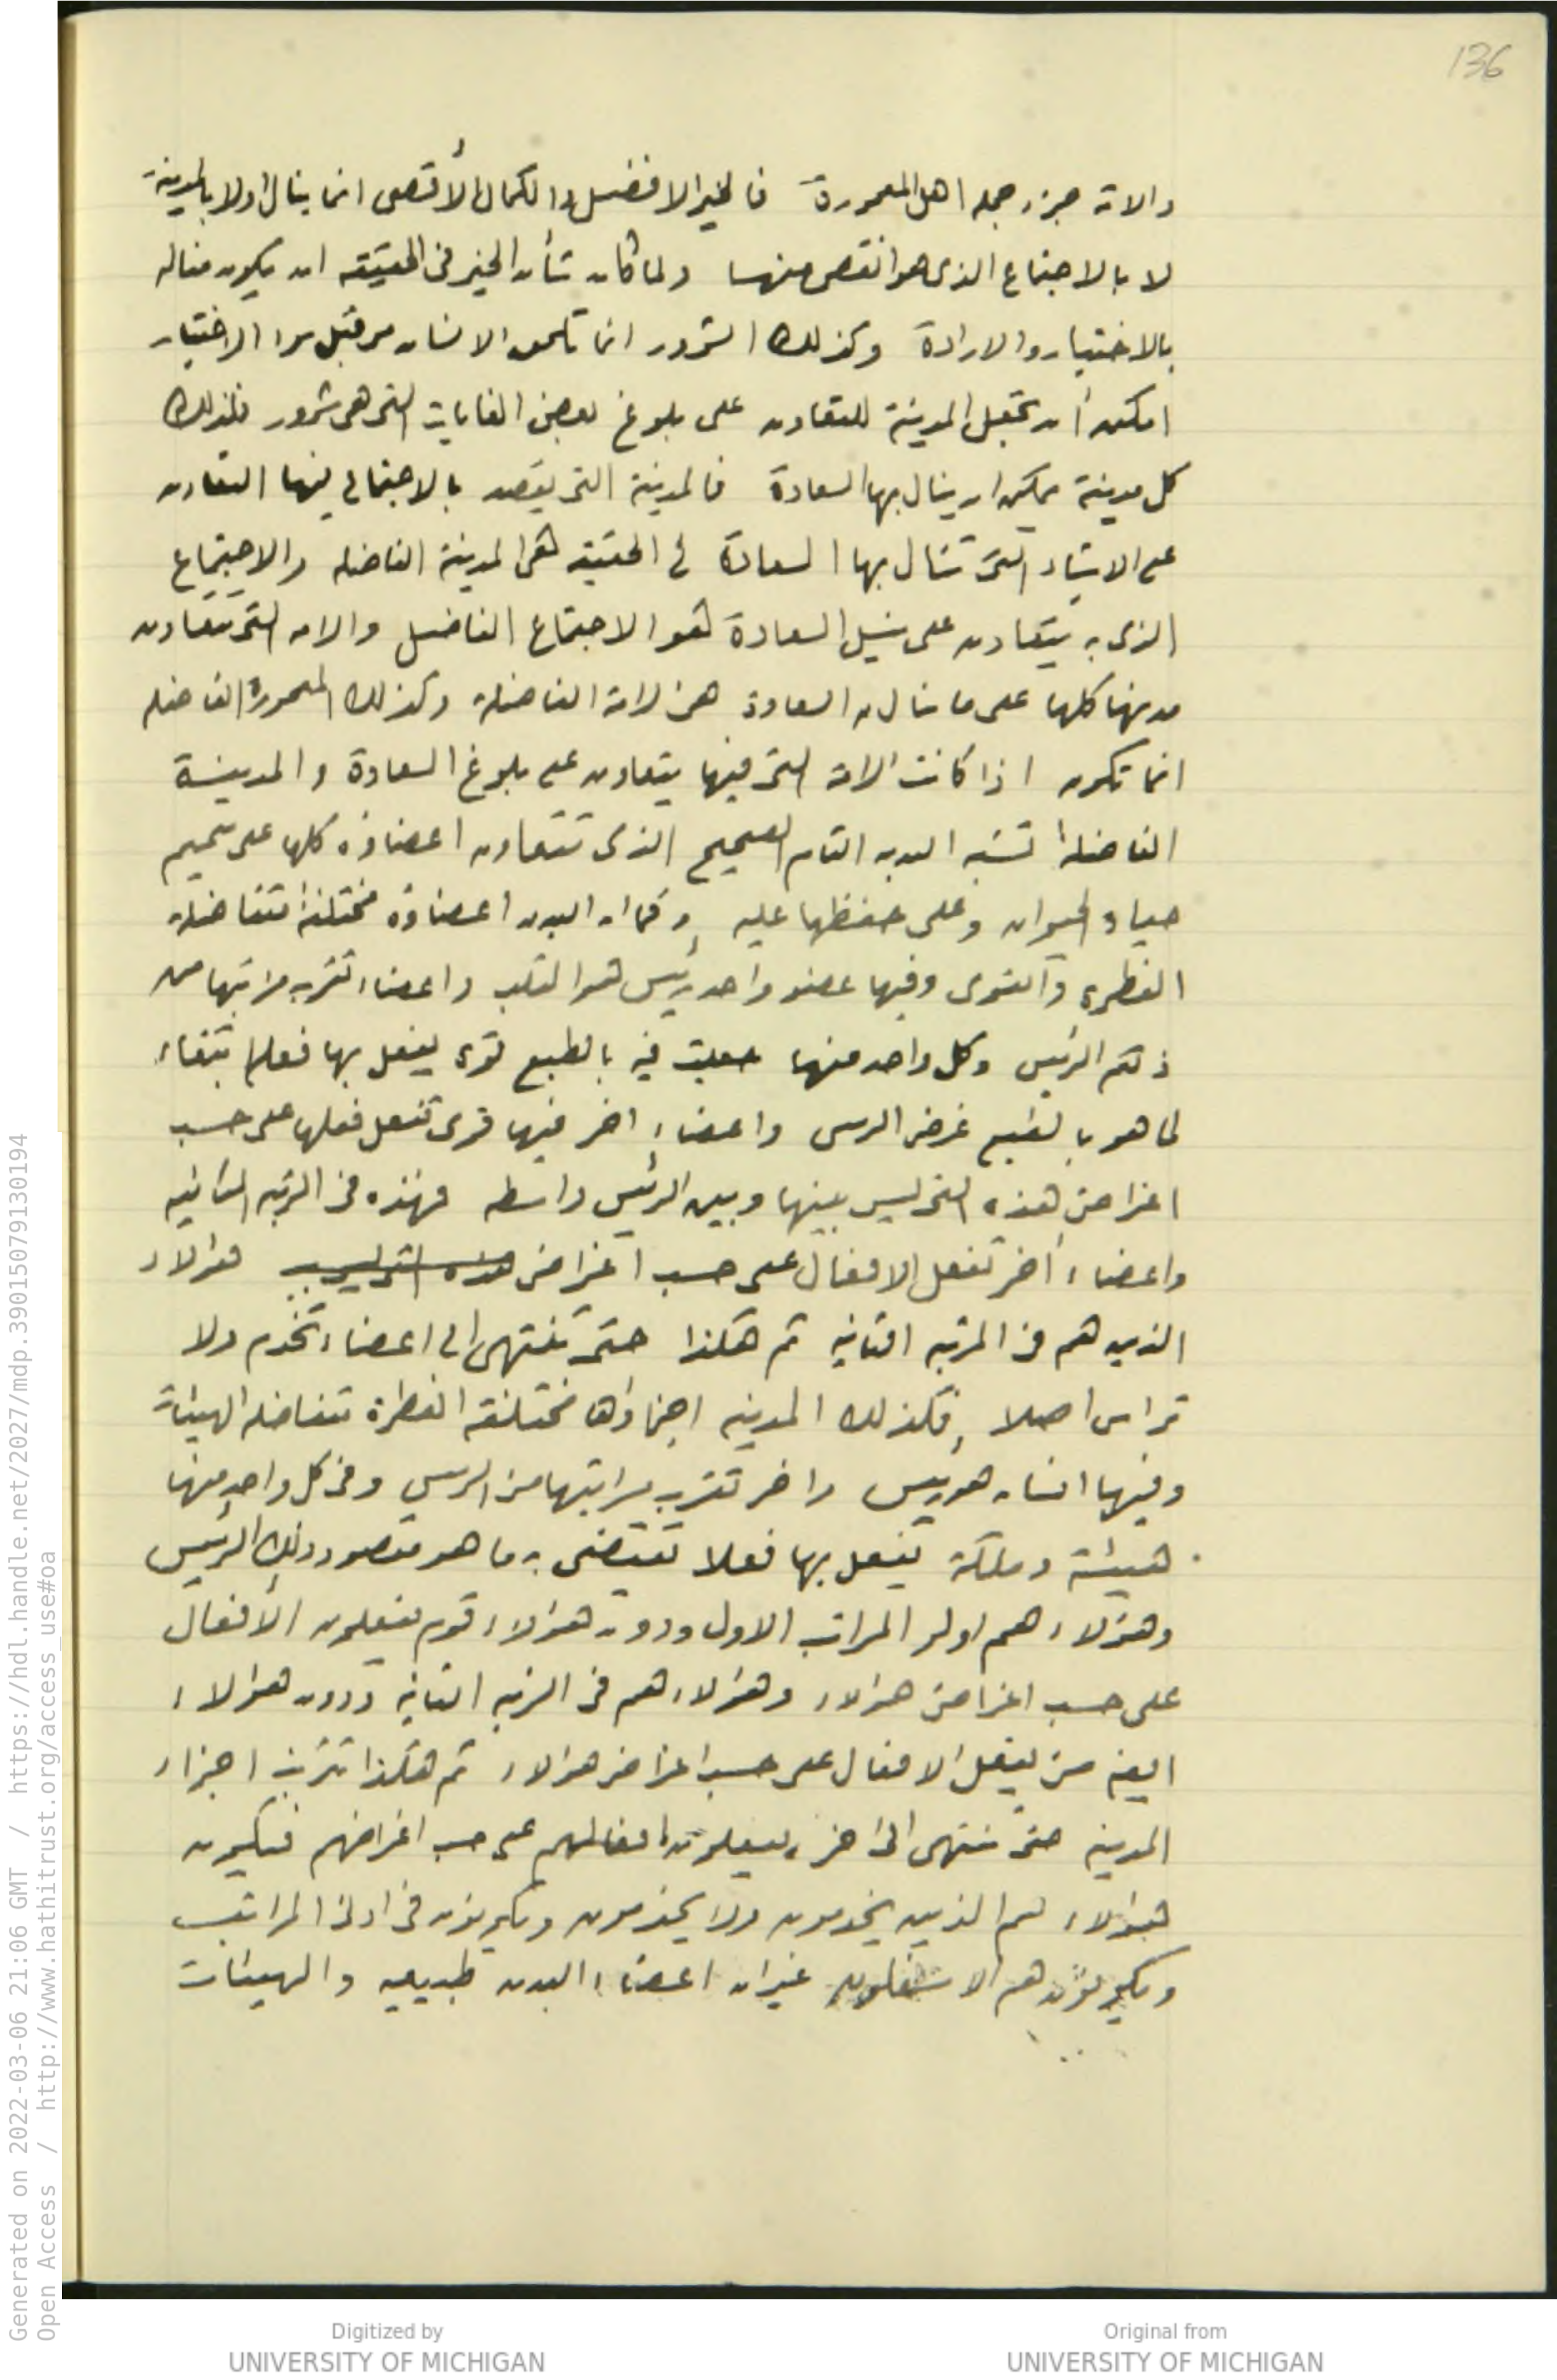 136
والامة جزء جملة اهل المعمورة فالخير الافضل والكمال الأقصى انما ينال اولا بالمدينة
لا بالاجتماع الذى هو انقص منها ولما كان شأن الخير فى الحقيقه ان يكون مناله
بالاختيار والارادة وكذلك الشرور انما تكون الانسان من قبل الاختيار
امكن أن تجعل المدينة للتعاون على بلوغ بعض الغايات التى هى شرور فلذلك
كل مدينة يمكن ان ينال بها السعادة فالمدينة التى يقصد بالاجتماع فيها التعاون
على الاشياء التى تنال بها السعادة فى الحقيقه هى المدينة الفاضله والاجتماع
الذى به يتعاون على نيل السعادة هو الاجتماع الفاضل والامه التى تتعاون
مدنها كلها على ما تنال به السعادة هى الامة الفاضلة وكذلك المعمورة الفاضله
انما تكون اذا كانت الامة التى فيها يتعاون على بلوغ السعادة والمدينة
الفاضلة تشبه البدن التام الصحيح الذى تتعاون اعضاؤه كلها على تتميم
حياة الحيوان وعلى حفظها عليه وكما ان البدن اعضاؤه مختلفة متفاضلة
الفطرة والقوى وفيها عضو واحد رئيس هو القلب واعضاء تقرب مراتبها من
ذلك الرئيس وكل واحد منها جعلت فيه بالطبع قوة يفعل بها فعله ابتغاء
لما هو بالطبع غرض الرئيس واعضاء اخر فيها قوى تفعل فعلها على حسب
اغراض هذه التى ليس بينها وبين الرئيس واسطه فهذه فى الرتبه الثانيه
واعضاء أخر تفعل الافعال على حسب اغراض هذه التى ليس هؤلاء
الذين هم فى المرتبه الثانيه ثم هكذا حتى تنتهى الى اعضاء تخدم ولا
ترأس اصلا فكذلك المدينه اجزاؤها مختلفه الفطرة متفاضله الهيئات
وفيها انسان هو رئيس واخر تقرب مراتبها من الرئيس وفى كل واحد منها
هيئة وملكة يفعل بها فعلا تقتضى به ما هو مقصود ذلك الرئيس
وهؤلاء هم اولو المراتب الاول ودون هؤلاء قوم يفعلون الأفعال
على حسب اغراض هؤلاء وهؤلاء هم فى الرتبه الثانيه ودون هؤلاء
ايضا من يفعل الافعال على حسب اغراض هؤلاء ثم هكذا تترتب اجزاء
المدينه حتى تنتهى الى اخر يفعلون افعالهم على حسب اغراضهم فيكون
هؤلاء هم الذين يخدمون ولا يخدمون ويكونون فى ادنى المراتب
ويكونون هم الاسفلون غير ان اعضاء البدن طبيعيه والهيئات
Generated on 2022-03-06 21:06 GMT / https://hdl.handle.net/2027/mdp.39015079130194
Open Access / http://www.hathitrust.org/access_use#oa
Digitized by
UNIVERSITY OF MICHIGAN
Original from
UNIVERSITY OF MICHIGAN